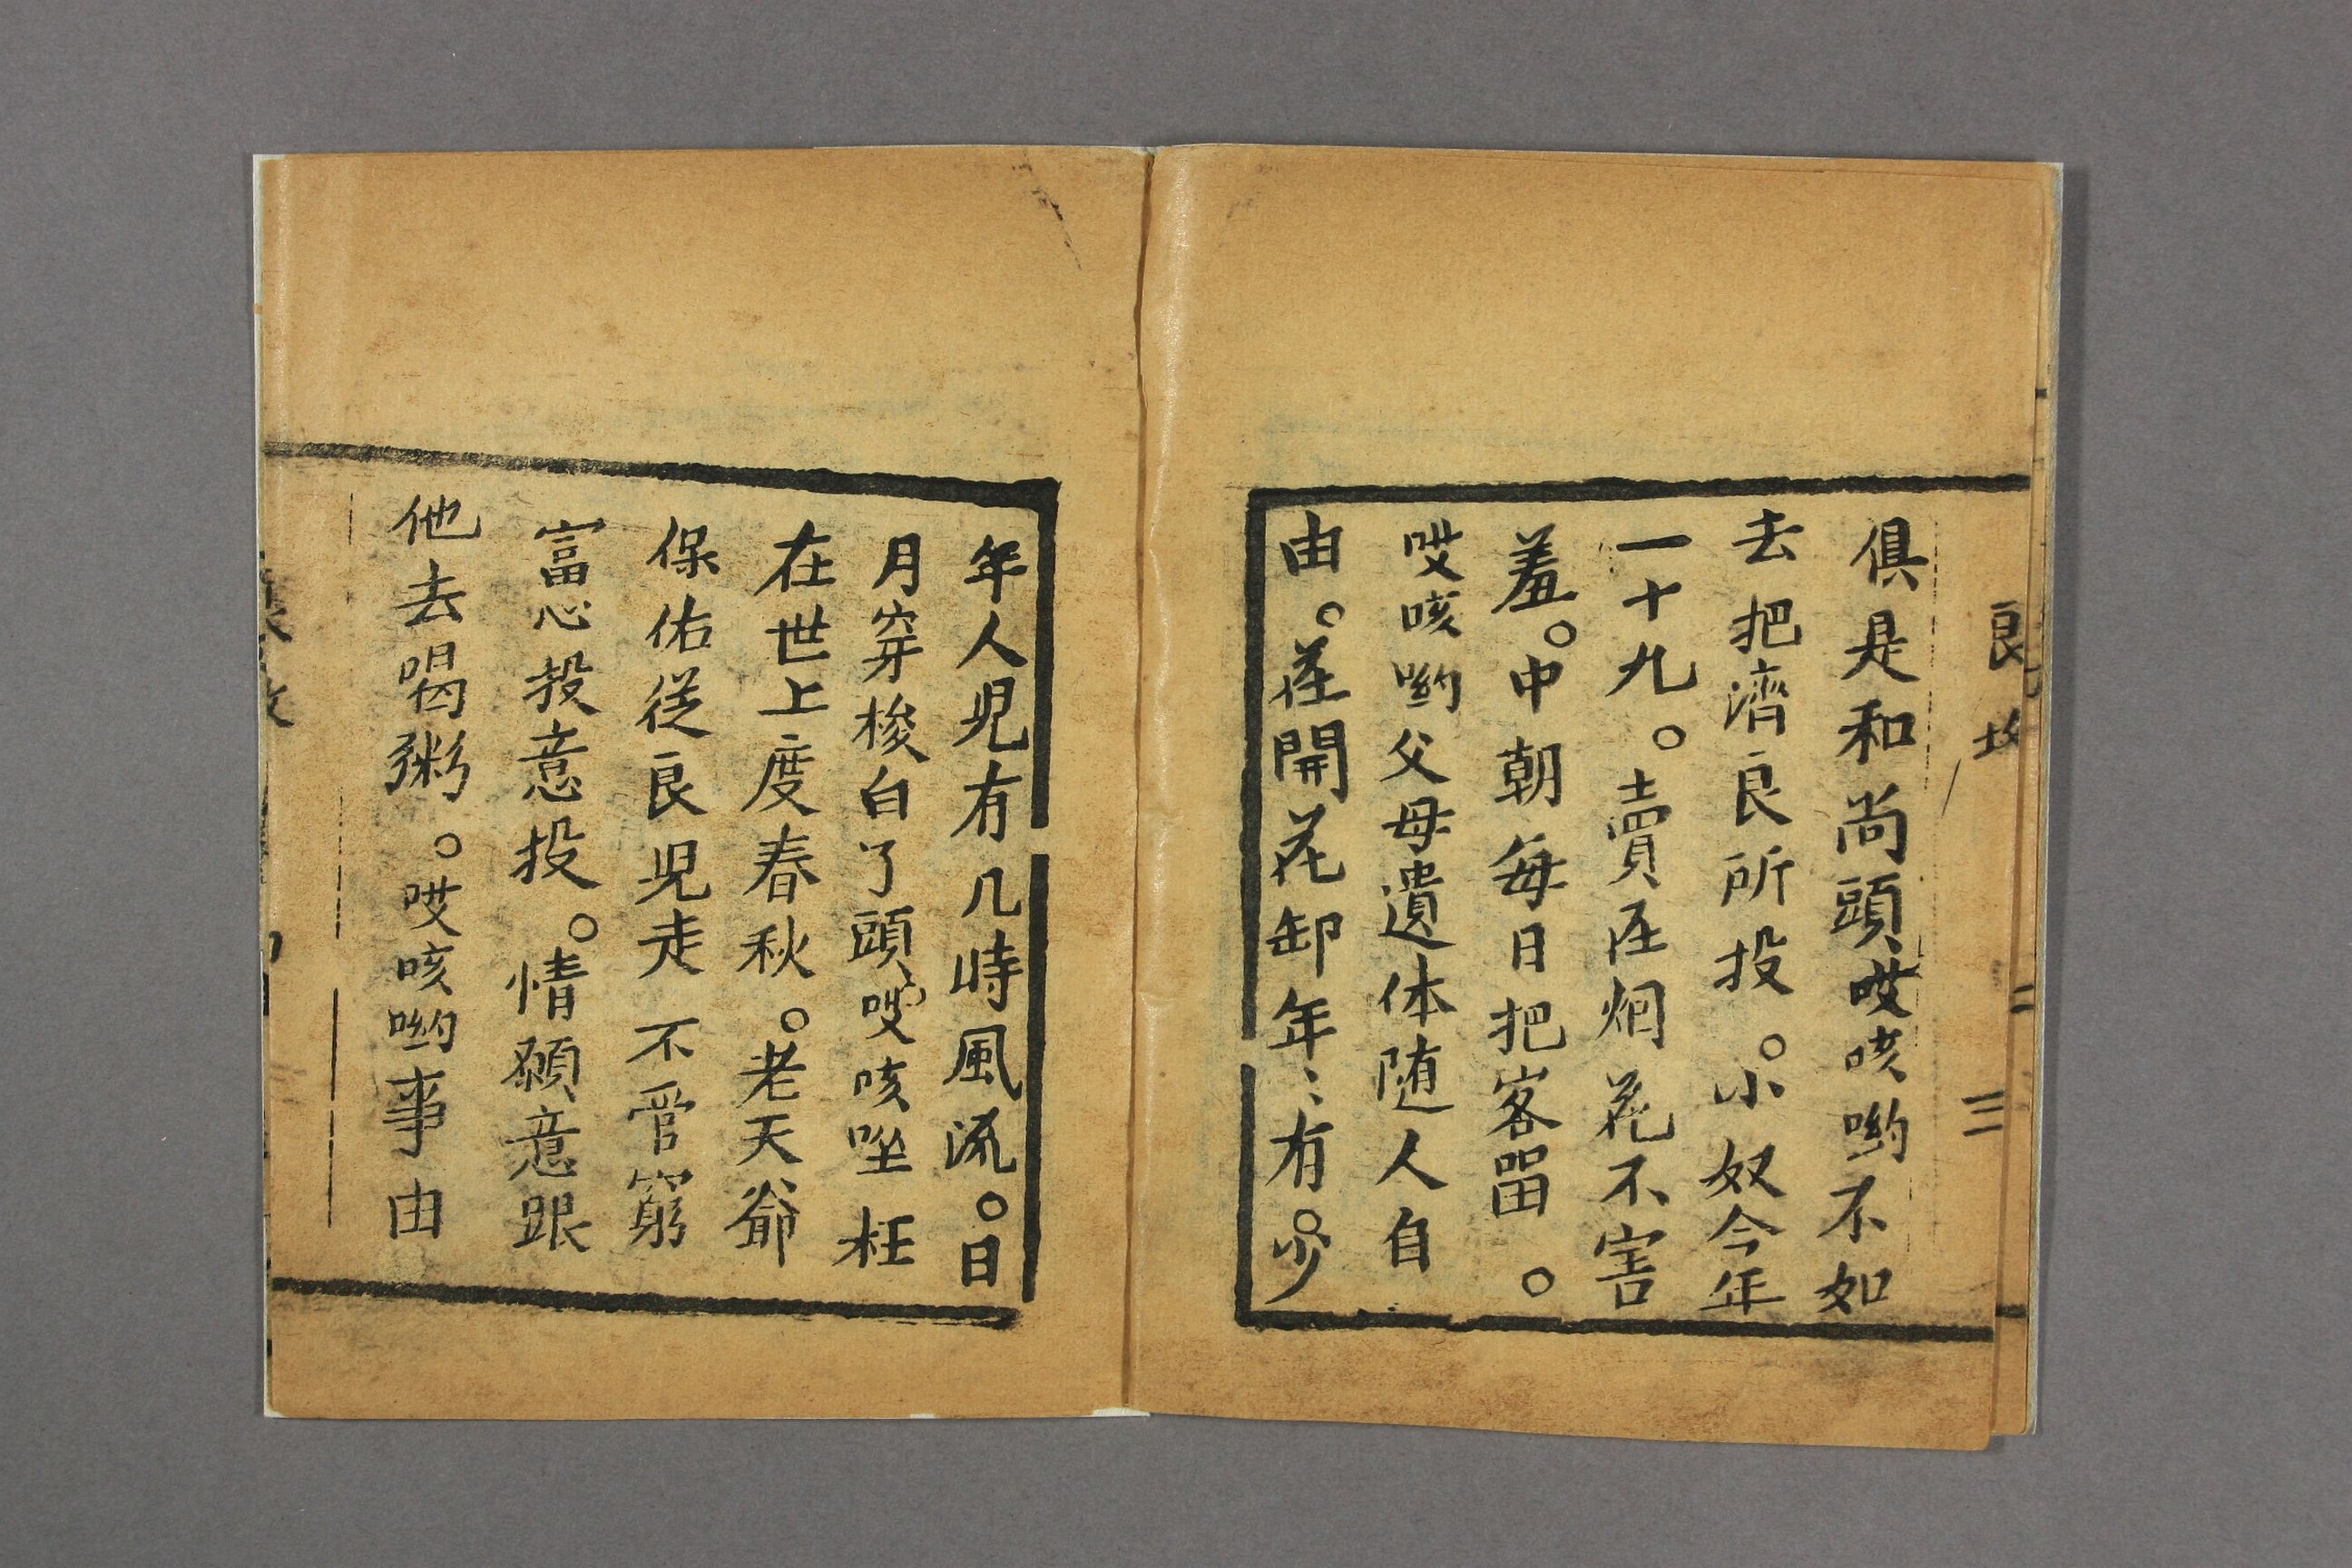 俱是和尚頭哎咳喲不如
去把濟良所投。小奴今年
一十九。賣在烟花不害
羞。中朝每日把客畱。
哎咳喲父母遺体随人自
由。花開花卸年〻有。少
年人児有几時風流。日
月穿梭白了頭哎咳唑枉
在世上度春秋。老天爺
保佑從良児走不管窮
富心投意投。情願意跟
他去喝粥。哎咳喲事由
良
三